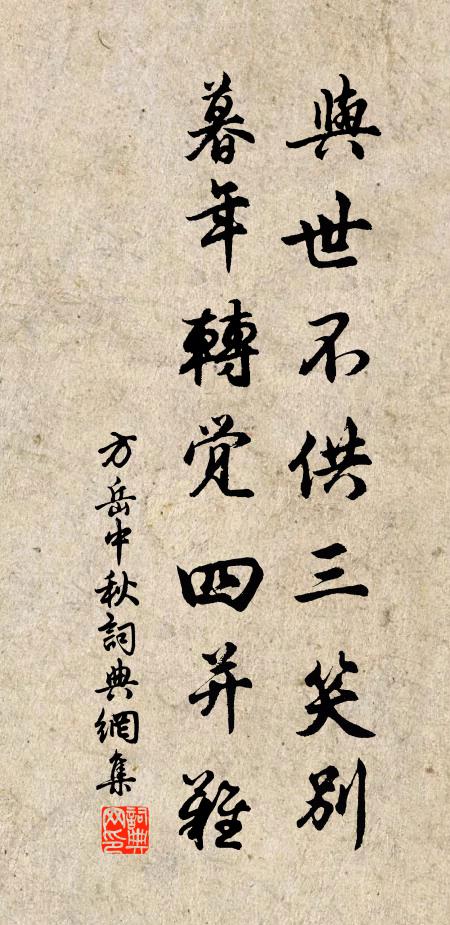 與世不供三笑別
暮年轉覺四并難
方岳中秋詞典網集
詞典網印